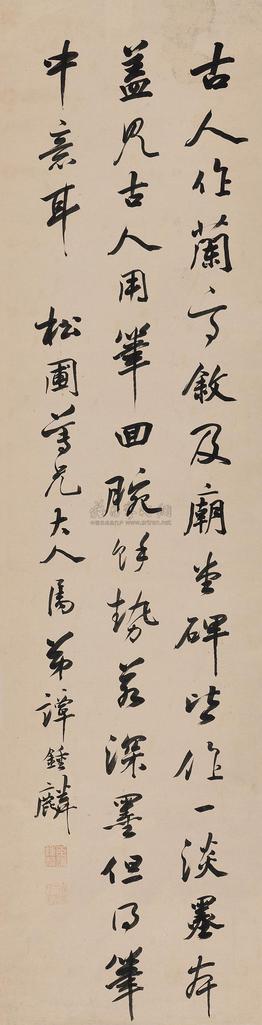 古人作蘭亭敘及廟堂碑皆作一淡墨本
蓋見古人用筆回腕餘勢若深墨但得筆
中意耳 松圃尊兄大人屬 弟譚鍾麟